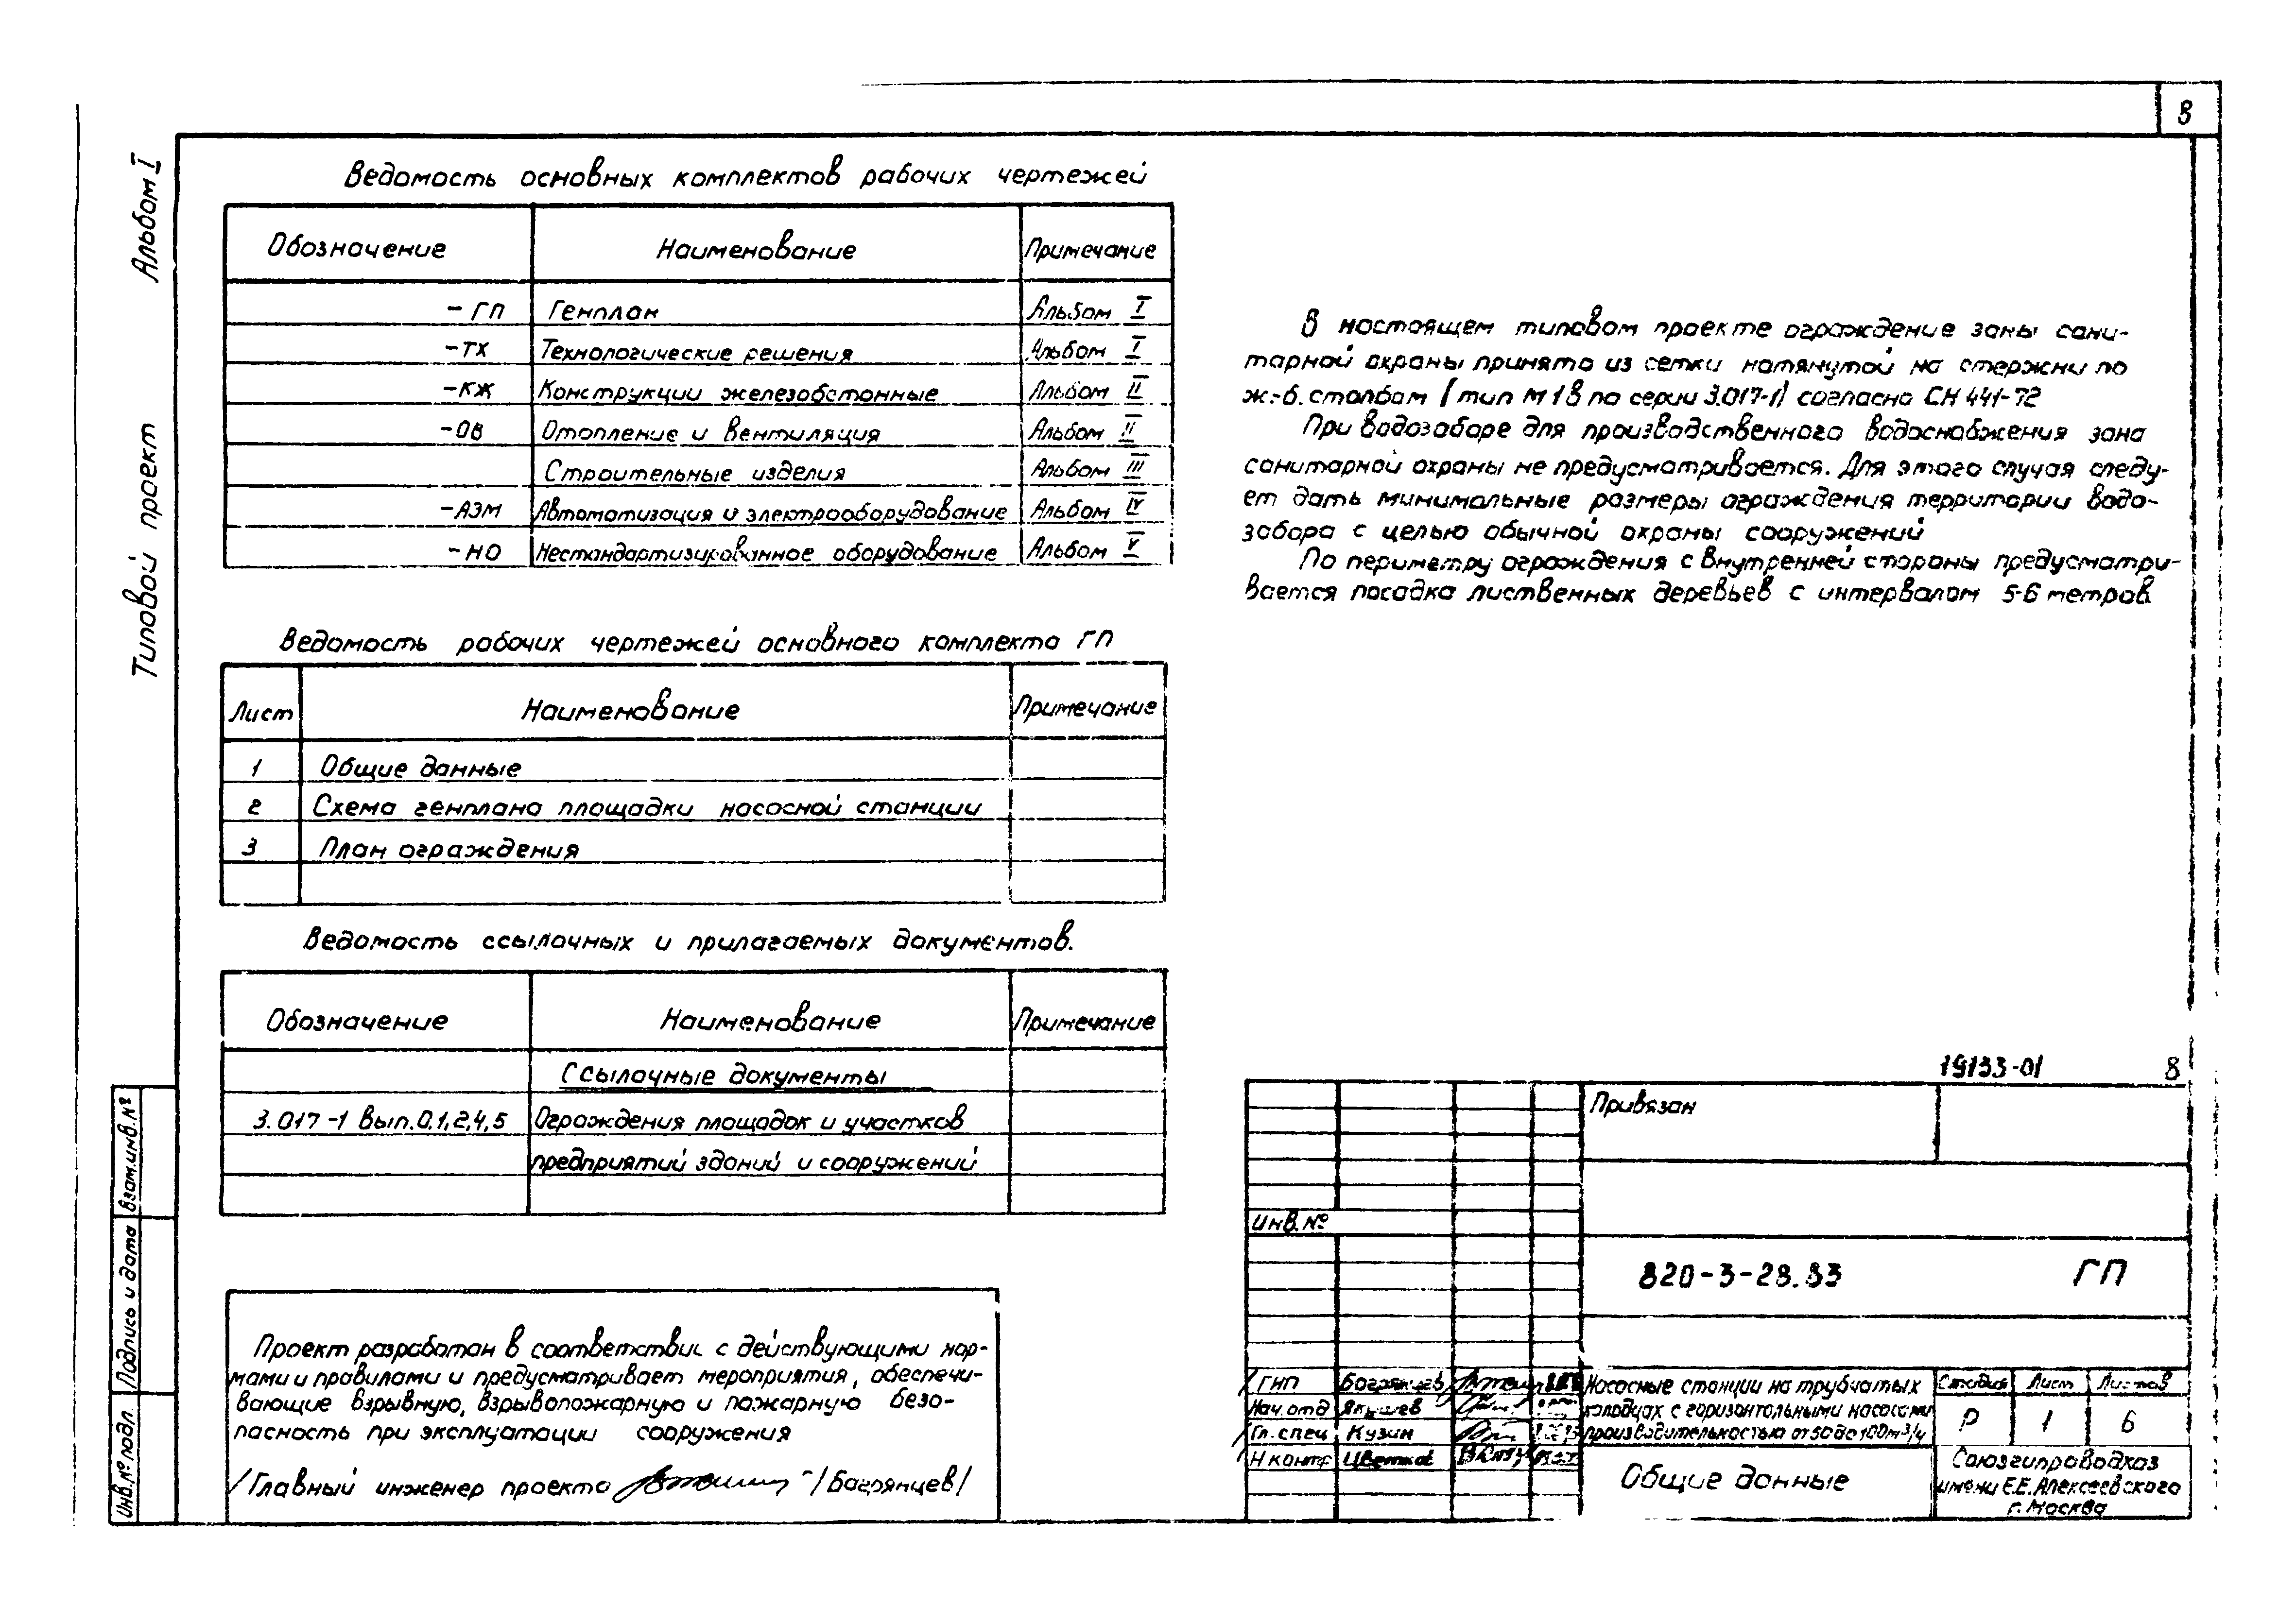 8
Альбом I
Типовой проект
Ведомость основных комплектов рабочих чертежей
Обозначение Наименование Примечание
-ГП Генплан Альбом I
-ТХ Технологические решения Альбом I
-КЖ Конструкции железобетонные Альбом II
-ОВ Отопление и вентиляция Альбом II
Строительные изделия Альбом III
-АЭМ Автоматизация и электрооборудование Альбом IV
-НО Нестандартизированное оборудование Альбом V
Ведомость рабочих чертежей основного комплекта ГП
Лист Наименование Примечание
1 Общие данные
2 Схема генплана площадки насосной станции
3 План ограждения
Ведомость ссылочных и прилагаемых документов.
Обозначение Наименование Примечание
Ссылочные документы
3.017-1 Вып.0,1,2,4,5 Ограждения площадок и участков
предприятий зданий и сооружений
Проект разработан в соответствии с действующими нор-
мами и правилами и предусматривает мероприятия, обеспечи-
вающие взрывную, взрывопожарную и пожарную безо-
пасность при эксплуатации сооружения
/Главный инженер проекта /Багрянцев/
В настоящем типовом проекте ограждение зоны сани-
тарной охраны принято из сетки натянутой на стержни по
ж.-б. столбам (тип М1В по серии 3.017-1) согласно СН 441-72
При водозаборе для производственного водоснабжения зона
санитарной охраны не предусматривается. Для этого случая следу-
ет дать минимальные размеры ограждения территории водо-
забора с целью обычной охраны сооружений
По периметру ограждения с внутренней стороны предусматри-
вается посадка лиственных деревьев с интервалом 5-6 метров
19133-01 8
Привязан
Инв.№
820-3-28.83 ГП
ГИП Багрянцев
Нач.отд Якушев
Гл.спец Кузин
Н контр Цветков
Насосные станции на трубчатых
колодцах с горизонтальными насосами
производительностью от 50 до 100 м³/ч
Стадия Лист Листов
Р 1 6
Общие данные
Союзгипроводхоз
имени Е.Е.Алексеевского
г. Москва
Взам.инв.№
Подпись и дата
Инв.№ подл.